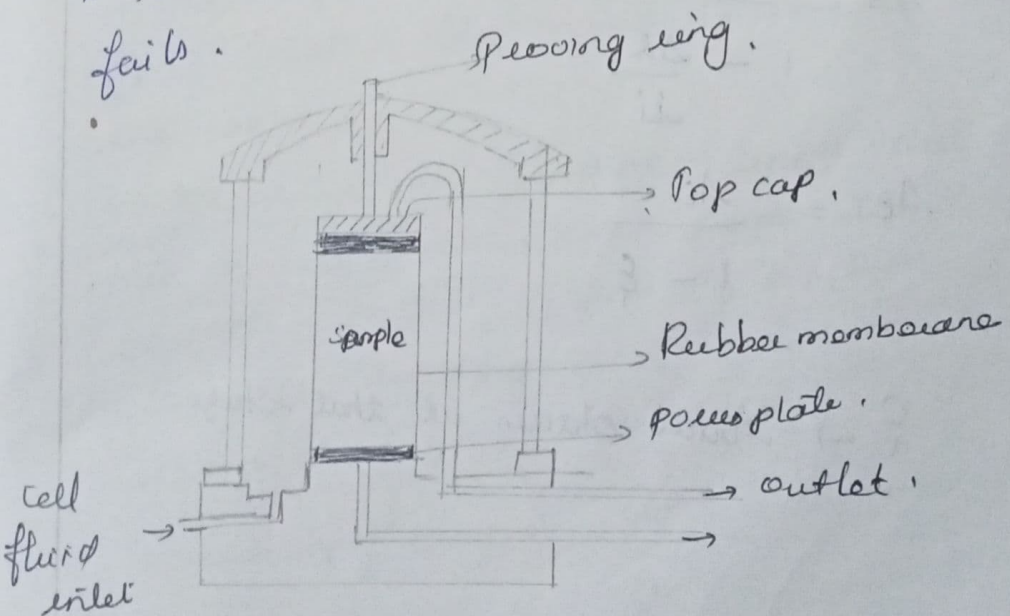 fails.
Prooving ring.
Top cap.
sample
Rubber membrane
porus plate.
outlet.
Cell
fluid
inlet